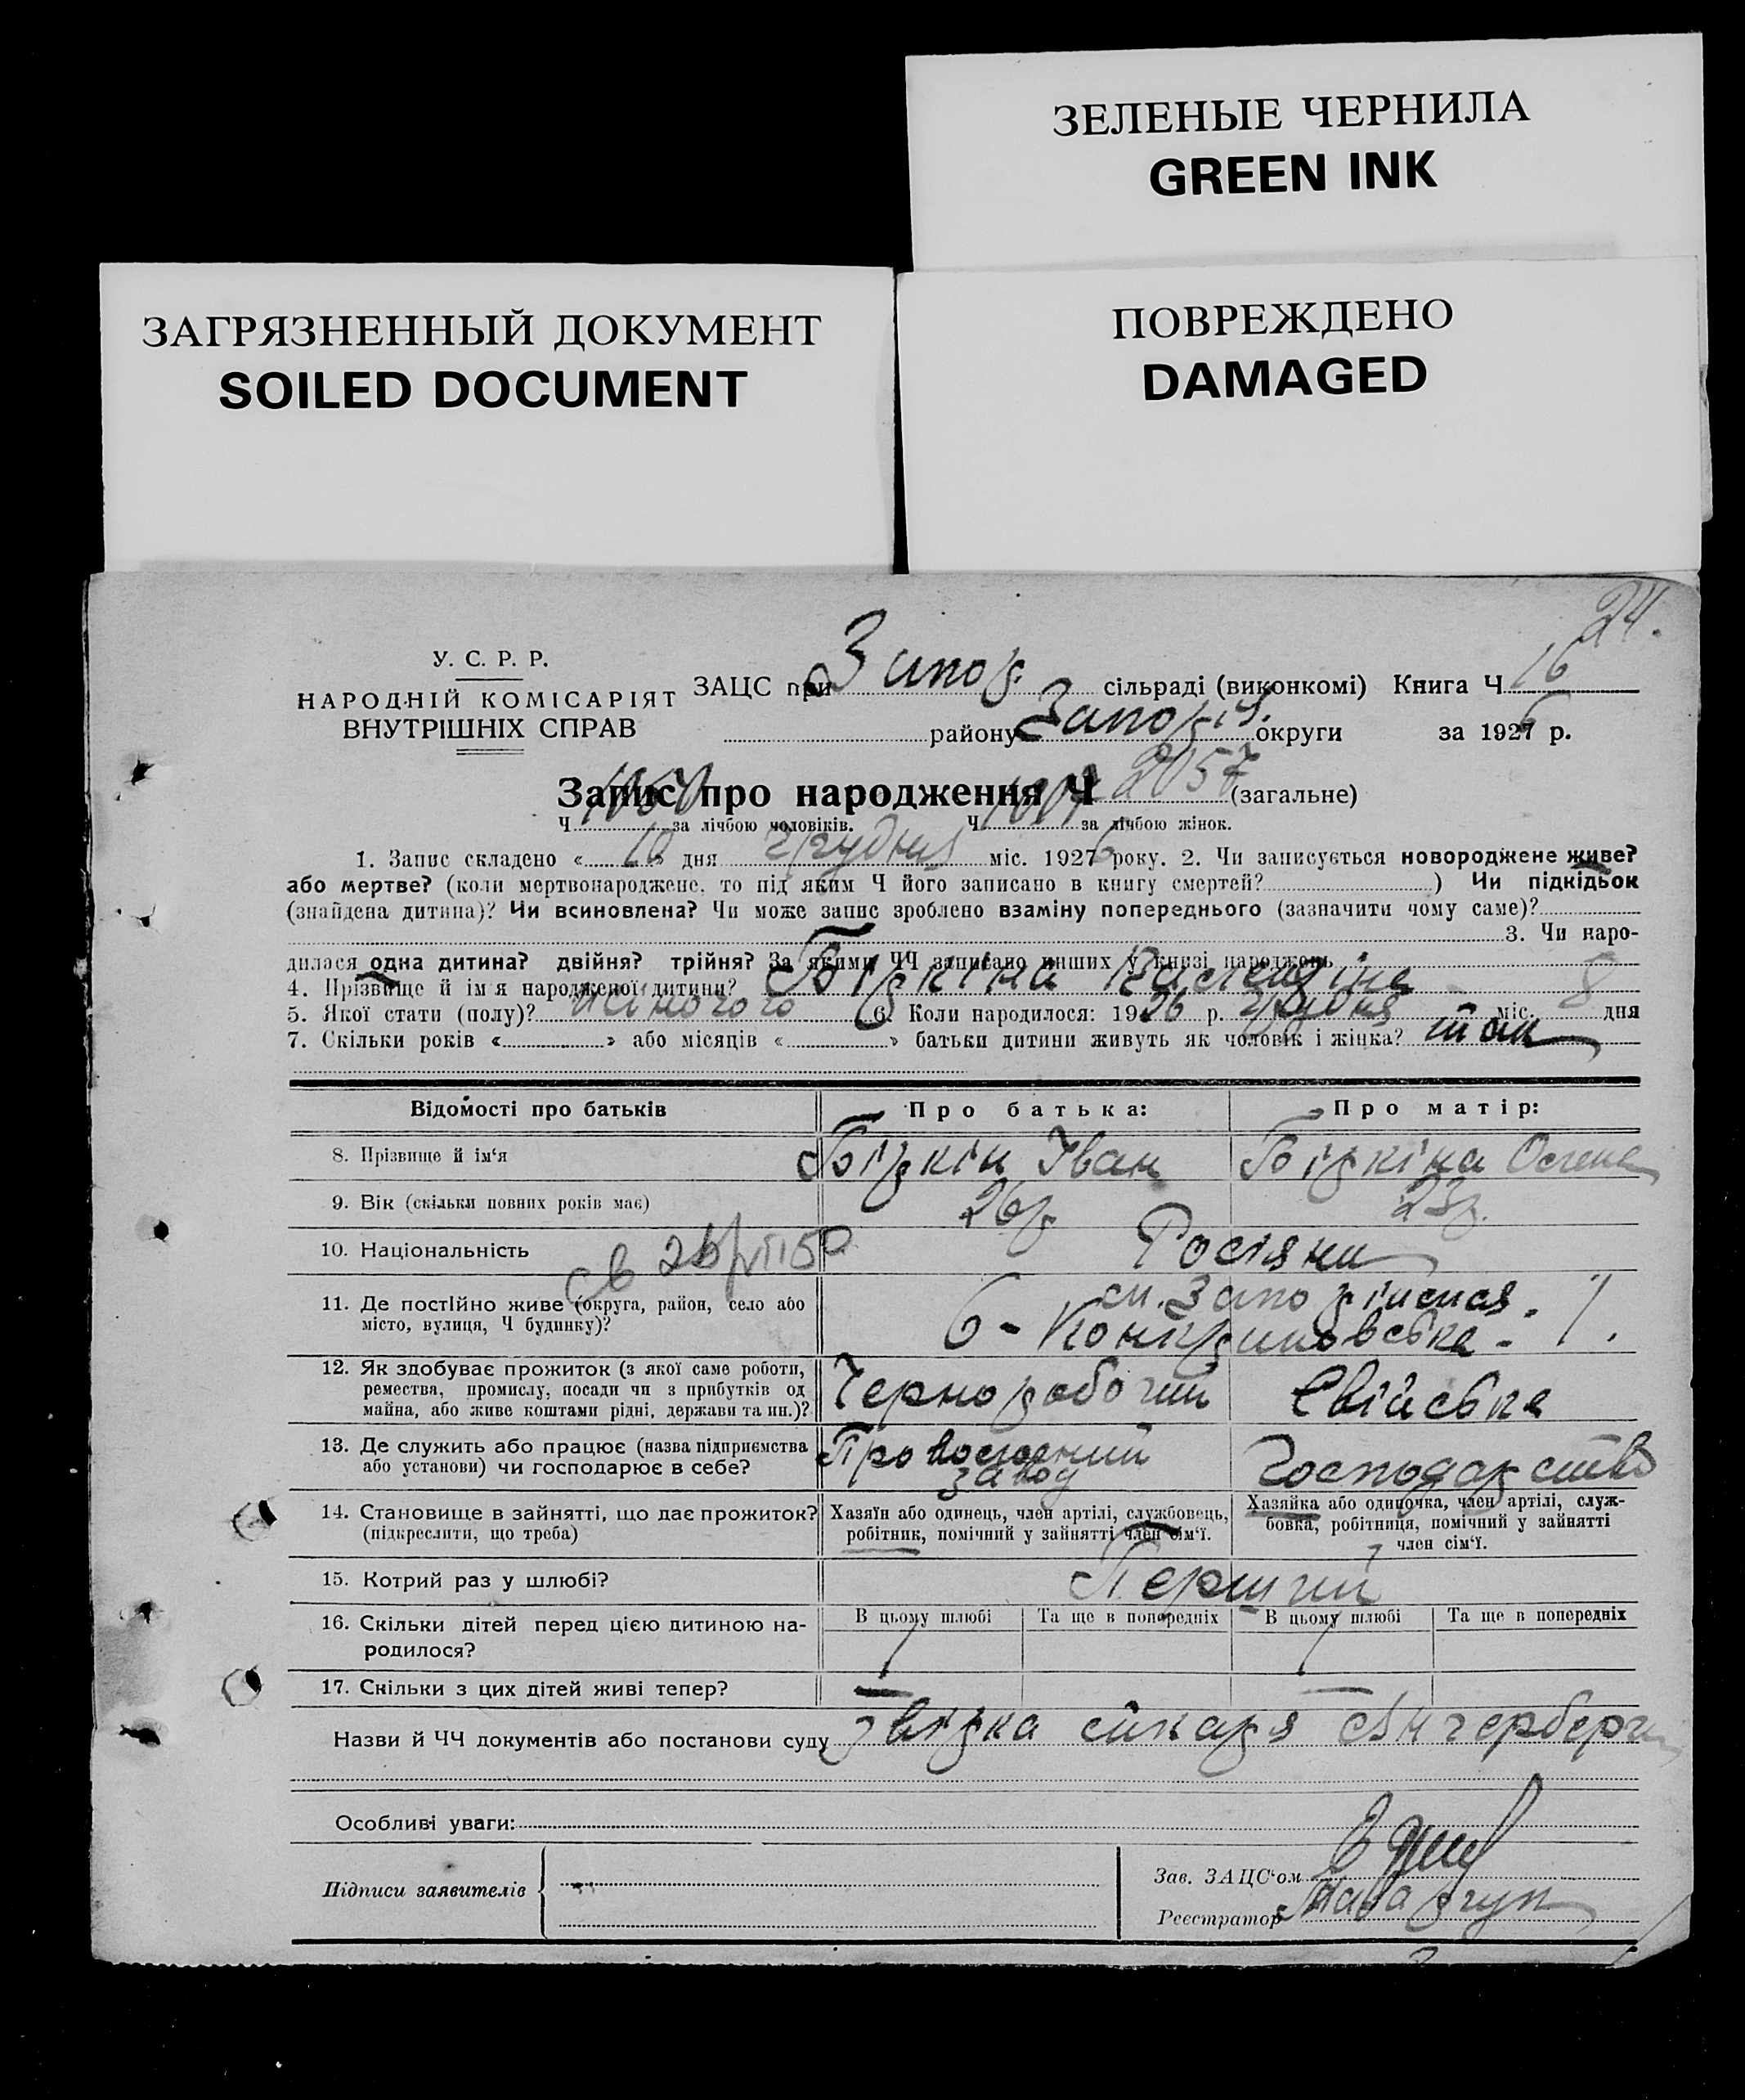 ЗЕЛЕНЫЕ ЧЕРНИЛА
GREEN INK
ЗАГРЯЗНЕННЫЙ ДОКУМЕНТ
SOILED DOCUMENT
ПОВРЕЖДЕНО
DAMAGED
24.
У. С. Р. Р.
НАРОДНІЙ КОМІСАРІЯТ
ВНУТРІШНІХ СПРАВ
ЗАЦС при Запор. сільраді (виконкомі) Книга Ч 16
району Запоріз. округи за 1926 р.
Запис про народження Ч 2057 (загальне)
Ч 1050 за лічбою чоловіків. Ч 1007 за лічбою жінок.
1. Запис складено « 10 » дня грудня міс. 1926 року. 2. Чи записується новороджене живе?
або мертве? (коли мертвонароджене, то під яким Ч його записано в книгу смертей? ) Чи підкідьок
(знайдена дитина)? Чи всиновлена? Чи може запис зроблено взаміну попереднього (зазначити чому саме)?
3. Чи наро-
дилася одна дитина? двійня? трійня? За якими ЧЧ записано инших у книзі народжень
4. Прізвище й ім'я народженої дитини? Біркіна Валентіна
5. Якої стати (полу)? жіночого 6. Коли народилося: 1926 р. грудня міс. 8 дня
7. Скільки років « » або місяців « » батьки дитини живуть як чоловік і жінка?
Відомості про батьків
Про батька:
Про матір:
8. Прізвище й ім'я
Біркін Іван
Біркіна Олена
9. Вік (скільки повних років має)
26р.
23р.
10. Національність
Росіяни
11. Де постійно живе (округа, район, село або
місто, вулиця, Ч будинку)?
12. Як здобуває прожиток (з якої саме роботи,
ремества, промислу, посади чи з прибутків од
майна, або живе коштами рідні, держави та ин.)?
Чернорабочий
Свійське
13. Де служить або працює (назва підприємства
або установи) чи господарює в себе?
завод
Господарство
14. Становище в зайнятті, що дає прожиток?
(підкреслити, що треба)
Хазяїн або одинець, член артілі, службовець,
робітник, помічний у зайнятті член сім'ї.
Хазяйка або одиночка, член артілі, служ-
бовка, робітниця, помічний у зайнятті
член сім'ї.
15. Котрий раз у шлюбі?
Перший
16. Скільки дітей перед цією дитиною на-
родилося?
В цьому шлюбі
Та ще в попередніх
В цьому шлюбі
Та ще в попередніх
1
1
17. Скільки з цих дітей живі тепер?
—
—
Назви й ЧЧ документів або постанови суду
Особливі уваги:
Підписи заявителів
Зав. ЗАЦС'ом
Реєстратор